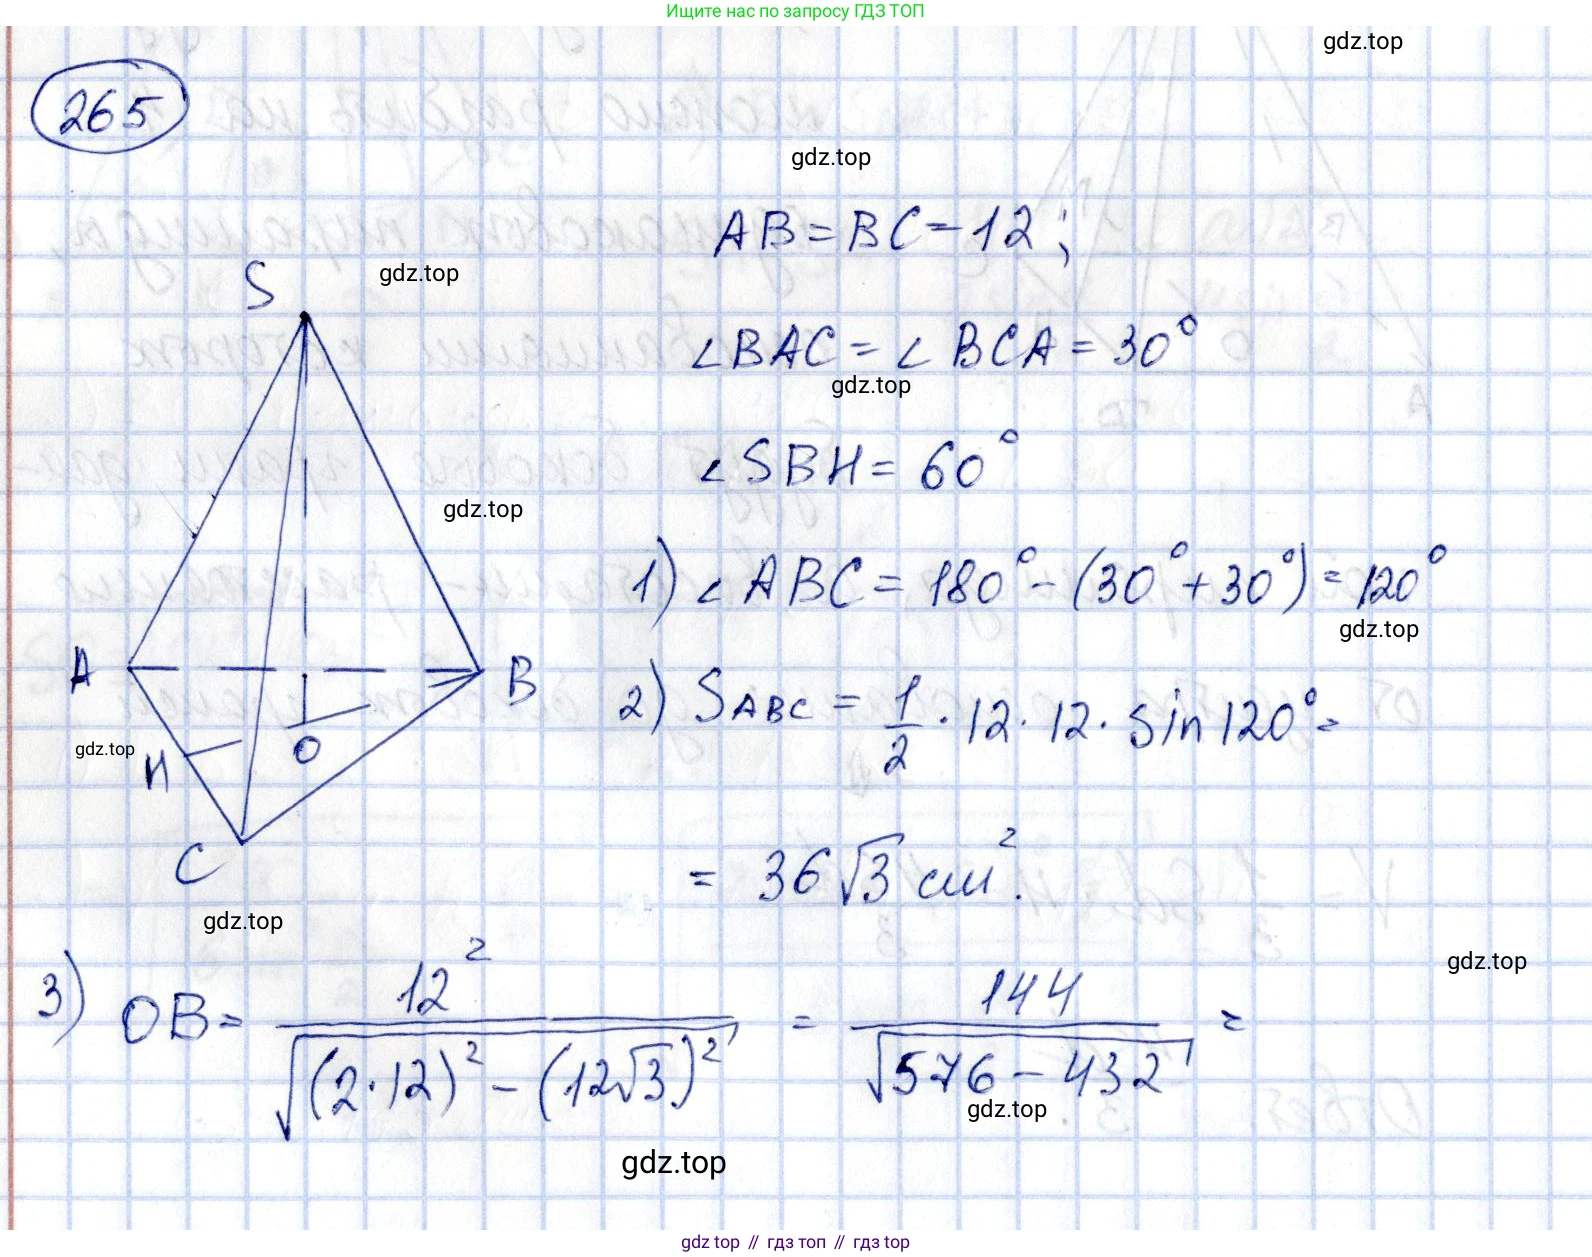 Ищите нас по запросу ГДЗ ТОП
gdz.top
265
gdz.top
AB = BC = 12;
S
gdz.top
∠BAC = ∠BCA = 30°
gdz.top
∠SBH = 60°
gdz.top
1) ∠ABC = 180° - (30° + 30°) = 120°
gdz.top
A
B
2) S_ABC = 1/2 · 12 · 12 · sin 120° =
gdz.top
H
O
C
= 36√3 см².
gdz.top
gdz.top
3) OB = 12² / √((2·12)² - (12√3)²) = 144 / √(576 - 432) =
gdz.top
gdz.top
gdz top // гдз топ // gdz top